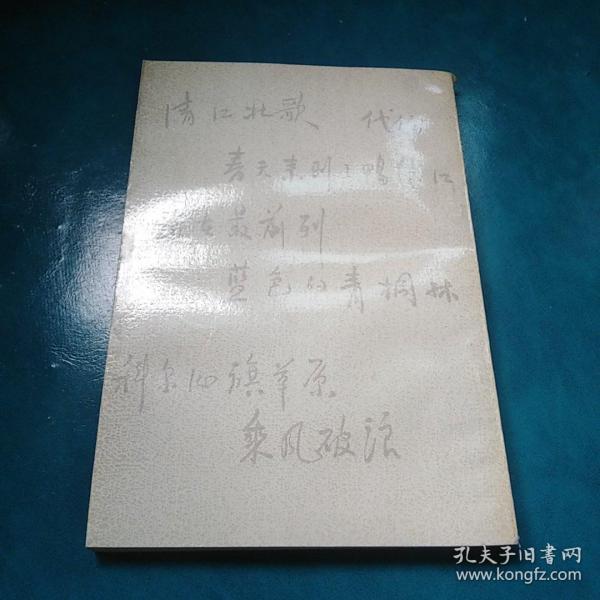 清江壮歌 代价
春天来到了鸭绿江
在最前列
蓝色的青㭎林
科尔沁旗草原
乘风破浪
孔夫子旧书网
www.kongfz.com